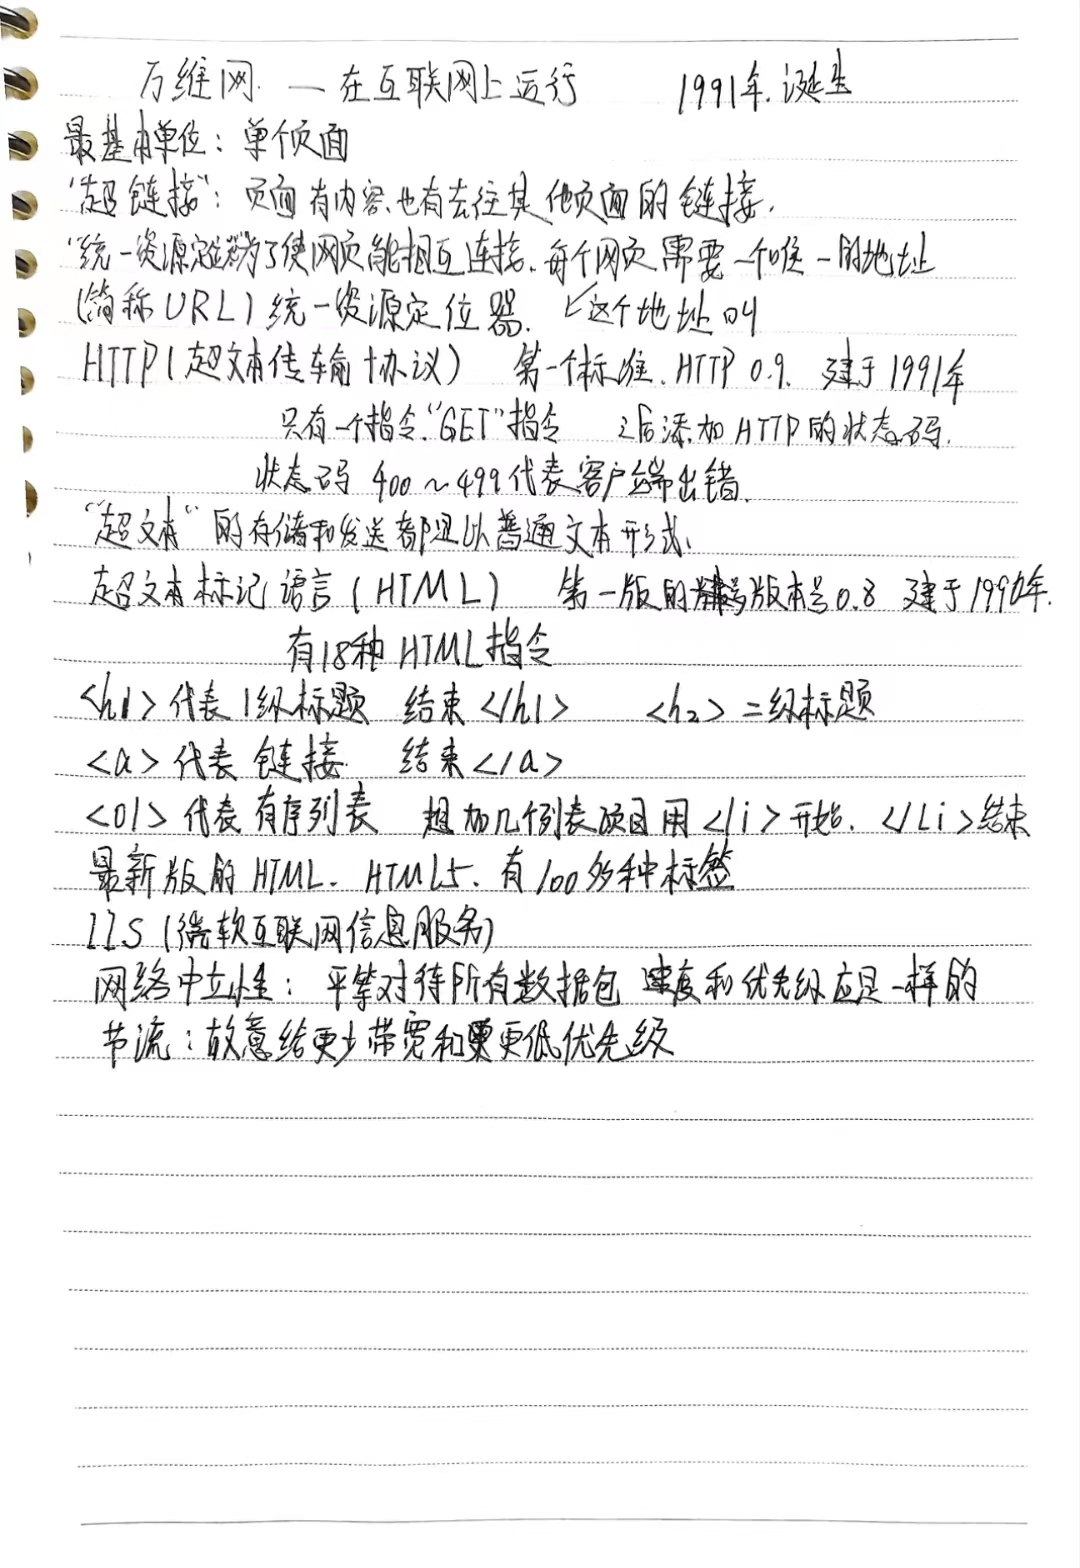 万维网 — 在互联网上运行 1991年.诞生
最基本单位：单个页面
"超链接"：页面有内容也有去往其他页面的链接.
"统一资源定位器"为了使网页能相互连接.每个网页需要一个唯一的地址
(简称URL)统一资源定位器. ↙这个地址叫
HTTP(超文本传输协议) 第一个标准.HTTP 0.9. 建于1991年
只有一个指令."GET"指令 之后添加HTTP的状态码.
状态码 400～499代表客户端出错.
"超文本"的存储和发送都是以普通文本形式.
超文本标记语言(HTML) 第一版的版本号0.8 建于1990年.
有18种HTML指令
<h1>代表1级标题 结束</h1> <h2>二级标题
<a>代表链接 结束</a>
<ol>代表有序列表 想加几个列表项目用</i>开始. </Li>结束
最新版的HTML. HTML5. 有100多种标签
IIS(微软互联网信息服务)
网络中立性：平等对待所有数据包 速度和优先级应是一样的
节流：故意给更少带宽和更低优先级